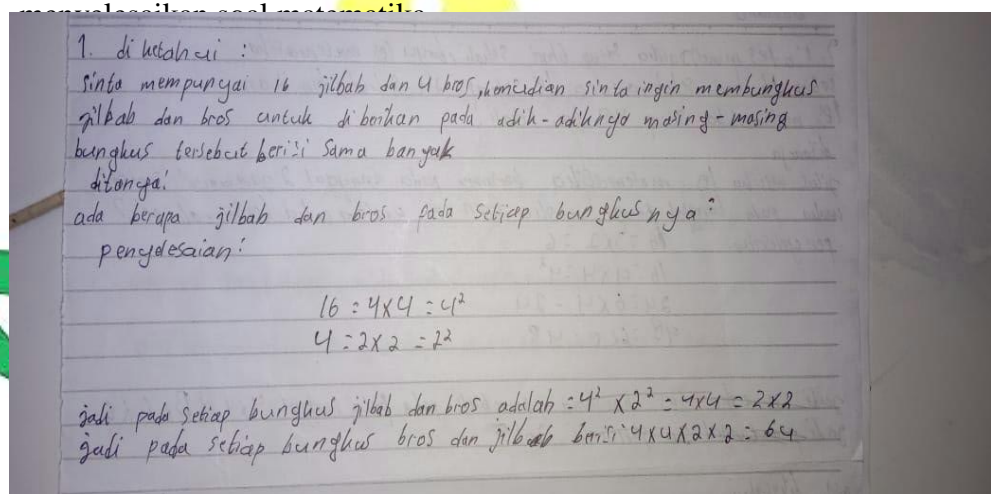 menyelesaikan soal matematika
1. di ketahui :
Sinta mempunyai 16 jilbab dan 4 bros, kemudian sinta ingin membungkus
jilbab dan bros untuk diberikan pada adik-adiknya masing-masing
bungkus tersebut berisi sama banyak
ditanya:
ada berapa jilbab dan bros pada setiap bungkusnya?
penyelesaian:
16 = 4x4 = 4²
4 = 2x2 = 2²
jadi pada setiap bungkus jilbab dan bros adalah = 4² x 2² = 4x4 = 2x2
jadi pada setiap bungkus bros dan jilbab berisi 4x4x2x2 = 64